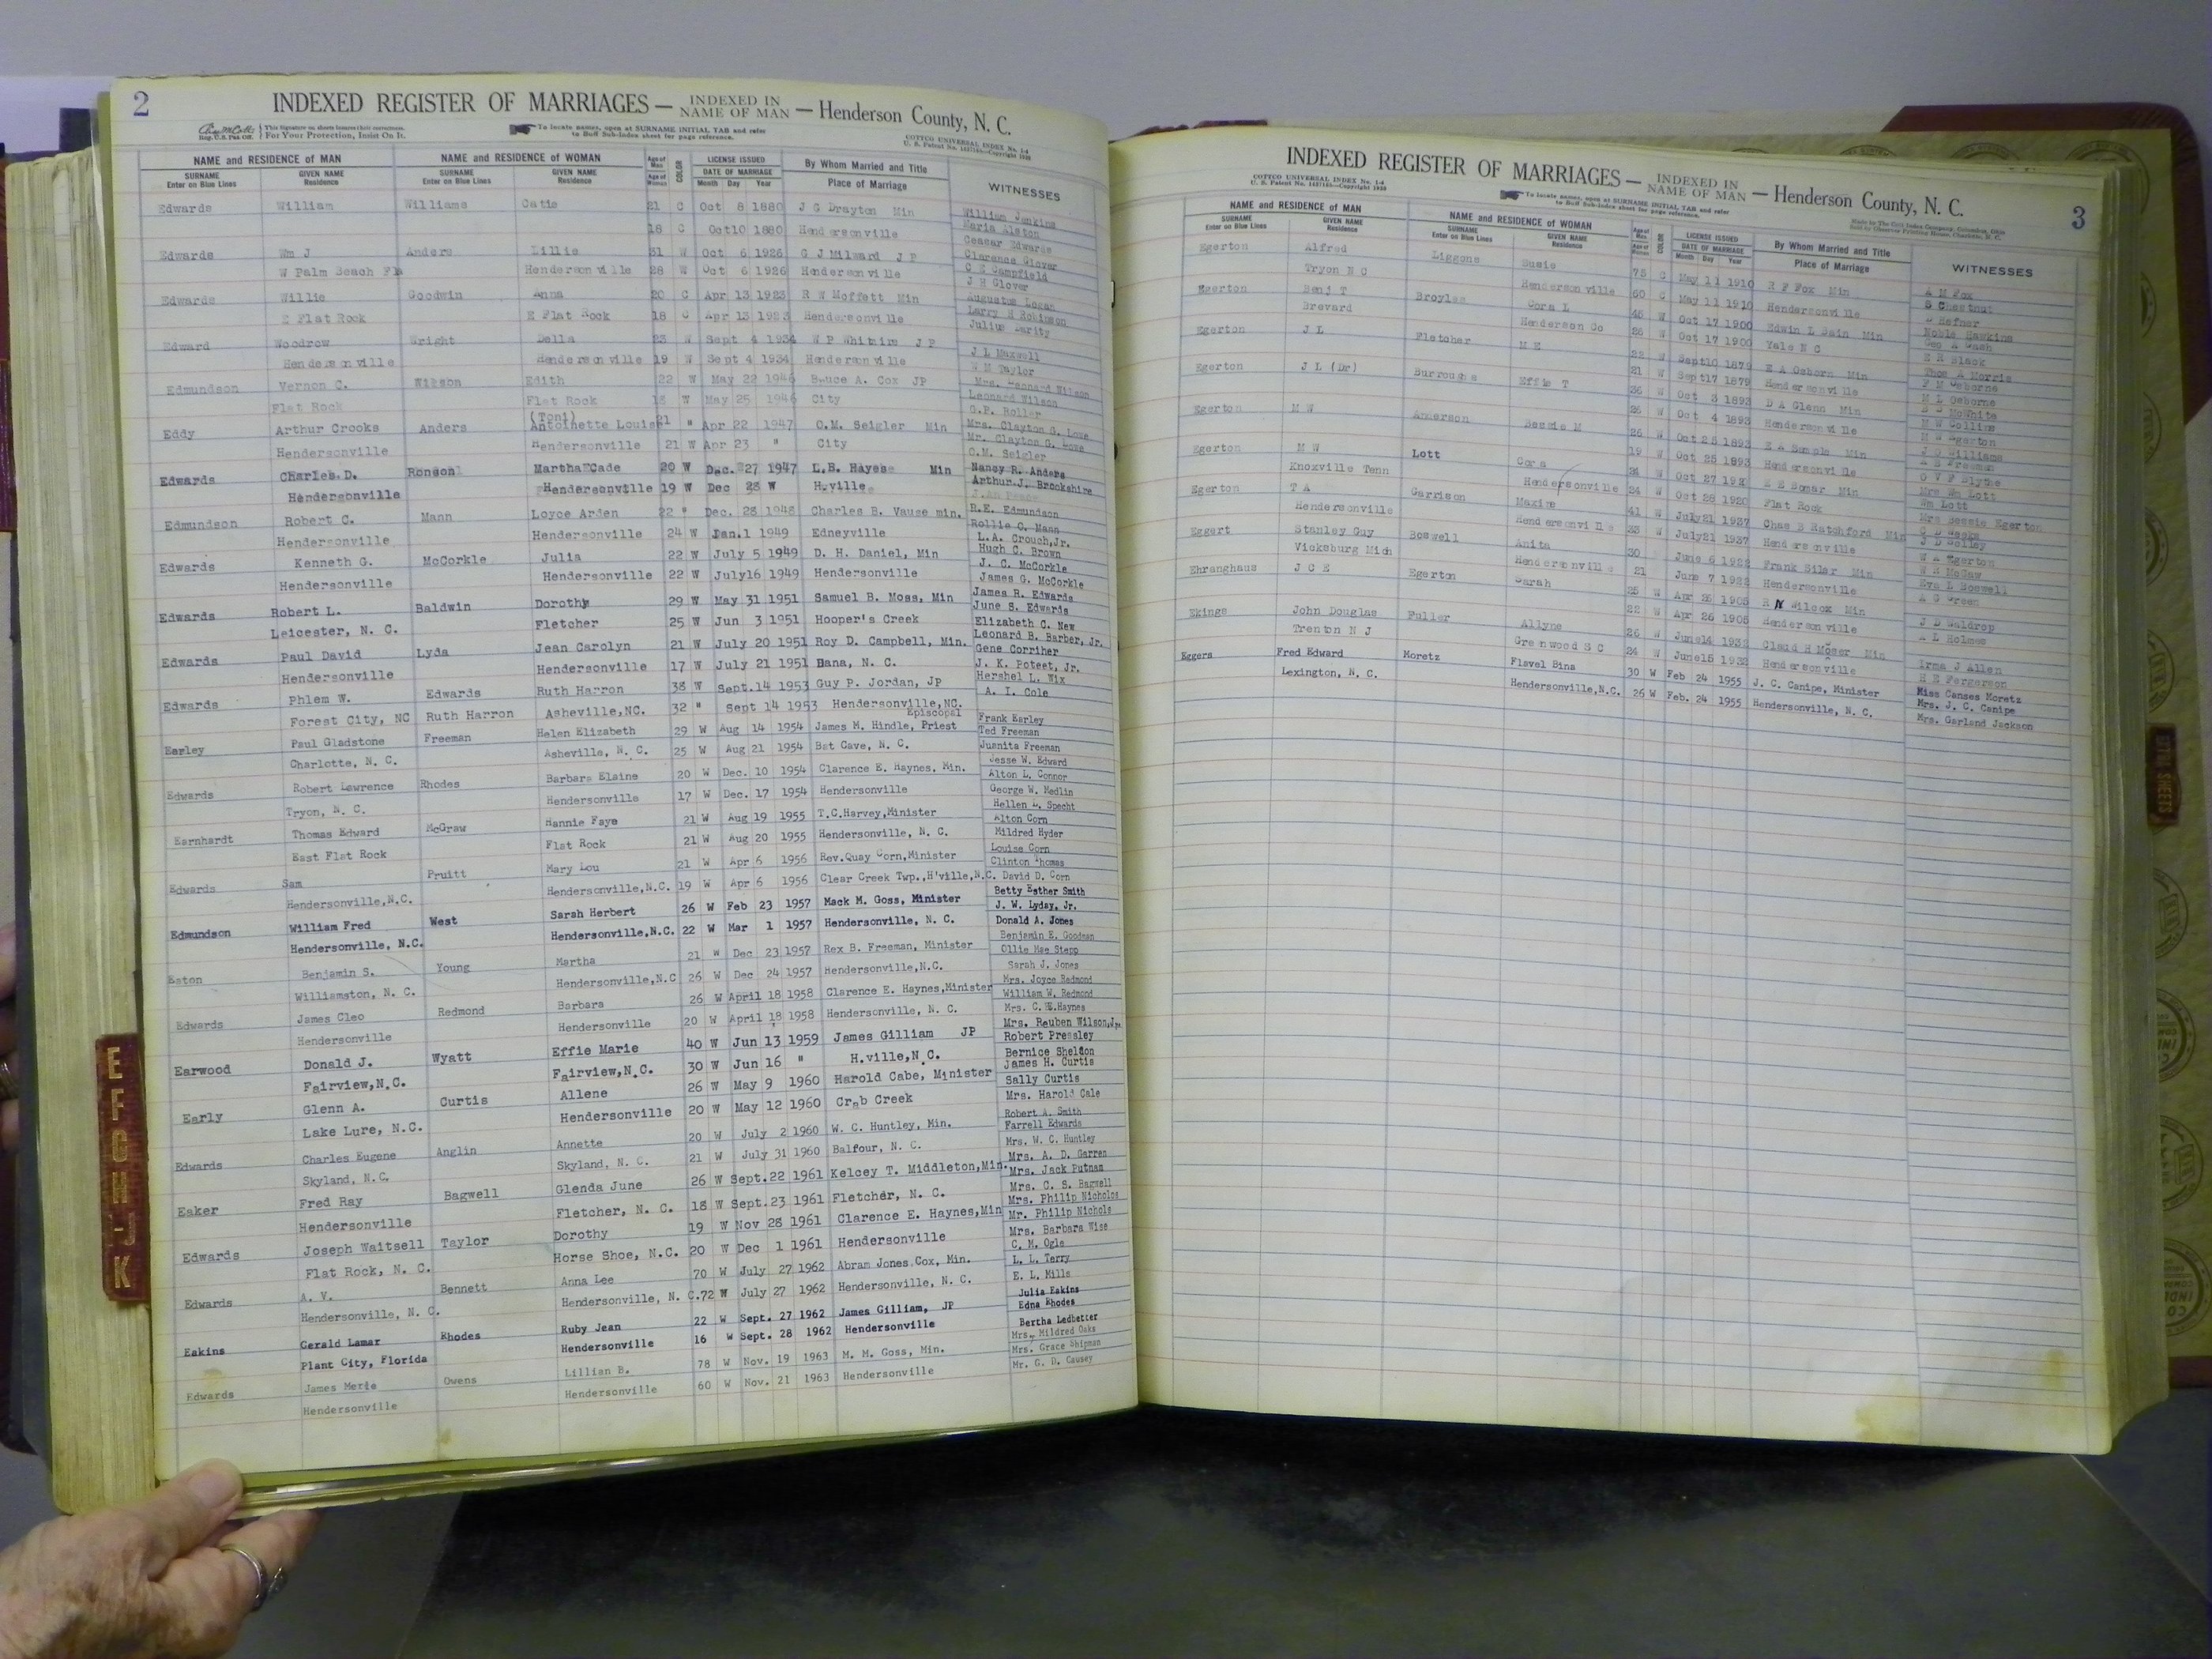 2
INDEXED REGISTER OF MARRIAGES — INDEXED IN NAME OF MAN — Henderson County, N. C.
Reg. U.S. Pat. Off. This Signature on sheets insures their correctness. For Your Protection, Insist On It.
To locate names, open at SURNAME INITIAL TAB and refer to Buff Sub-Index sheet for page reference.
COTTCO UNIVERSAL INDEX No. 1-4
NAME and RESIDENCE of MAN NAME and RESIDENCE of WOMAN Age of Man COLOR LICENSE ISSUED By Whom Married and Title WITNESSES
SURNAME Enter on Blue Lines GIVEN NAME Residence SURNAME Enter on Blue Lines GIVEN NAME Residence Age of Woman DATE OF MARRIAGE Month Day Year Place of Marriage
Edwards William Williams Catie 21 C Oct 8 1880 J G Drayton Min William Jenkins
Maria Alston
18 C Oct10 1880 Hendersonville Ceasar Edwards
Edwards Wm J Anders Lillie 31 W Oct 6 1926 G J Milward J P Clarence Glover
C E Campfield
W Palm Beach Fla Hendersonville 28 W Oct 6 1926 Hendersonville J H Glover
Edwards Willie Goodwin Anna 20 C Apr 13 1923 R W Moffett Min Augustus Logan
Larry H Robinson
E Flat Rock E Flat Rock 18 C Apr 13 1923 Hendersonville Julius Darity
Edward Woodrow Wright Della 23 W Sept 4 1934 W P Whitmire J P
J L Maxwell
Hendersonville Hendersonville 19 W Sept 4 1934 Hendersonville W M Taylor
Edmundson Vernon C. Wilson Edith 22 W May 22 1946 Bruce A. Cox JP Mrs. Lennard Wilson
Leonard Wilson
Flat Rock Flat Rock 18 W May 25 1946 City G.P. Roller
Eddy Arthur Crooks Anders (Toni) Antoinette Louise 21 " Apr 22 1947 O.M. Seigler Min Mrs. Clayton G. Lowe
Mr. Clayton G. Lowe
Hendersonville Hendersonville 21 W Apr 23 " City O.M. Seigler
Edwards Charles D. Ronson Martha Cade 20 W Dec. 27 1947 L.B. Hayes Min Nancy R. Anders
Arthur J. Brookshire
Hendersonville Hendersonville 19 W Dec 28 W H.ville
Edmundson Robert C. Mann Loyce Arden 22 " Dec. 28 1948 Charles B. Vause min. R.E. Edmundson
Rollie C. Mann
Hendersonville Hendersonville 24 W Jan.1 1949 Edneyville L.A. Crouch,Jr.
Edwards Kenneth G. McCorkle Julia 22 W July 5 1949 D. H. Daniel, Min Hugh C. Brown
J. C. McCorkle
Hendersonville Hendersonville 22 W July16 1949 Hendersonville James G. McCorkle
Edwards Robert L. Baldwin Dorothy 29 W May 31 1951 Samuel B. Moss, Min James R. Edwards
June S. Edwards
Leicester, N. C. Fletcher 25 W Jun 3 1951 Hooper's Creek Elizabeth C. New
Edwards Paul David Lyda Jean Carolyn 21 W July 20 1951 Roy D. Campbell, Min. Leonard B. Barber, Jr.
Gene Corriher
Hendersonville Hendersonville 17 W July 21 1951 Dana, N. C. J. K. Poteet, Jr.
Edwards Phlem W. Edwards Ruth Harron 38 W Sept.14 1953 Guy P. Jordan, JP Hershel L. Wix
A. I. Cole
Forest City, NC Ruth Harron Asheville,NC. 32 " Sept 14 1953 Hendersonville,NC.
Earley Paul Gladstone Freeman Helen Elizabeth 29 W Aug 14 1954 James M. Hindle, Episcopal Priest Frank Earley
Ted Freeman
Charlotte, N. C. Asheville, N. C. 25 W Aug 21 1954 Bat Cave, N. C. Juanita Freeman
Edwards Robert Lawrence Rhodes Barbara Elaine 20 W Dec. 10 1954 Clarence E. Haynes, Min. Jesse W. Edward
Alton L. Connor
Tryon, N. C. Hendersonville 17 W Dec. 17 1954 Hendersonville George W. Medlin
Earnhardt Thomas Edward McGraw Nannie Faye 21 W Aug 19 1955 T.C.Harvey,Minister Hellen L. Specht
Alton Corn
East Flat Rock Flat Rock 21 W Aug 20 1955 Hendersonville, N. C. Mildred Hyder
Edwards Sam Pruitt Mary Lou 21 W Apr 6 1956 Rev.Quay Corn,Minister Louise Corn
Clinton Thomas
Hendersonville,N.C. Hendersonville,N.C. 19 W Apr 6 1956 Clear Creek Twp.,H'ville,N.C. David D. Corn
Edmundson William Fred West Sarah Herbert 26 W Feb 23 1957 Mack M. Goss, Minister Betty Esther Smith
J. W. Lyday, Jr.
Hendersonville, N.C. Hendersonville,N.C. 22 W Mar 1 1957 Hendersonville, N. C. Donald A. Jones
Eaton Benjamin S. Young Martha 21 W Dec 23 1957 Rex B. Freeman, Minister Benjamin E. Goodman
Ollie Mae Stepp
Williamston, N. C. Hendersonville,N.C 26 W Dec 24 1957 Hendersonville,N.C. Sarah J. Jones
Edwards James Cleo Redmond Barbara 26 W April 18 1958 Clarence E. Haynes,Minister Mrs. Joyce Redmond
William W. Redmond
Hendersonville Hendersonville 20 W April 18 1958 Hendersonville, N. C. Mrs. C.E.Haynes
Earwood Donald J. Wyatt Effie Marie 40 W Jun 13 1959 James Gilliam JP Mrs. Reuben Wilson,Jr.
Robert Pressley
Fairview,N.C. Fairview,N.C. 30 W Jun 16 " H.ville,N.C. Bernice Sheldon
Early Glenn A. Curtis Allene 26 W May 9 1960 Harold Cabe, Minister James H. Curtis
Sally Curtis
Lake Lure, N.C. Hendersonville 20 W May 12 1960 Crab Creek Mrs. Harold Cale
Edwards Charles Eugene Anglin Annette 20 W July 2 1960 W. C. Huntley, Min. Robert A. Smith
Farrell Edwards
Skyland, N.C. Skyland, N. C. 21 W July 31 1960 Balfour, N. C. Mrs. W. C. Huntley
Eaker Fred Ray Bagwell Glenda June 26 W Sept.22 1961 Kelcey T. Middleton,Min. Mrs. A. D. Garren
Mrs. Jack Putnam
Hendersonville Fletcher, N. C. 18 W Sept.23 1961 Fletcher, N. C. Mrs. C. S. Bagwell
Edwards Joseph Waitsell Taylor Dorothy 19 W Nov 28 1961 Clarence E. Haynes,Min Mrs. Philip Nichols
Mr. Philip Nichols
Flat Rock, N. C. Horse Shoe, N.C. 20 W Dec 1 1961 Hendersonville Mrs. Barbara Wise
Edwards A. V. Bennett Anna Lee 70 W July 27 1962 Abram Jones Cox, Min. C. M. Ogle
L. L. Terry
Hendersonville, N. C. Hendersonville, N. C. 72 W July 27 1962 Hendersonville, N. C. E. L. Mills
Eakins Gerald Lamar Rhodes Ruby Jean 22 W Sept. 27 1962 James Gilliam, JP Julia Eakins
Edna Rhodes
Plant City, Florida Hendersonville 16 W Sept. 28 1962 Hendersonville Bertha Ledbetter
Edwards James Merle Owens Lillian B. 78 W Nov. 19 1963 M. M. Goss, Min. Mrs. Mildred Oaks
Mrs. Grace Shipman
Hendersonville Hendersonville 60 W Nov. 21 1963 Hendersonville Mr. G. D. Causey
E F G H I J K
INDEXED REGISTER OF MARRIAGES — INDEXED IN NAME OF MAN — Henderson County, N. C.
3
COTTCO UNIVERSAL INDEX No. 1-4
To locate names, open at SURNAME INITIAL TAB and refer to Buff Sub-Index sheet for page reference.
Made by The Cott Index Company, Columbus, Ohio
Sold by Observer Printing House, Charlotte, N. C.
NAME and RESIDENCE of MAN NAME and RESIDENCE of WOMAN Age of Man COLOR LICENSE ISSUED By Whom Married and Title WITNESSES
SURNAME Enter on Blue Lines GIVEN NAME Residence SURNAME Enter on Blue Lines GIVEN NAME Residence Age of Woman DATE OF MARRIAGE Month Day Year Place of Marriage
Egerton Alfred Liggons Susie 75 C May 11 1910 R F Fox Min A M Fox
S Chestnut
Tryon N C Hendersonville 60 C May 11 1910 Hendersonville D Hefner
Egerton Benj T Broyles Cora L 45 W Oct 17 1900 Edwin L Bain Min Noble Hawkins
Geo A Cash
Brevard Henderson Co 26 W Oct 17 1900 Yale N C E R Black
Egerton J L Fletcher M E 22 W Sept10 1879 E A Osborn Min Thos A Morris
F M Osborne
21 W Sept17 1879 Hendersonville M L Osborne
Egerton J L (Dr) Burroughs Effie T 36 W Oct 3 1893 D A Glenn Min McWhite
M W Collins
26 W Oct 4 1893 Hendersonville M W Egerton
Egerton M W Anderson Bessie M 26 W Oct 25 1893 E A Sample Min J O Williams
A E Freeman
19 W Oct 25 1893 Hendersonville G V F Blythe
Egerton M W Lott Cora W Oct 27 E E Bomar Min Mrs Wm Lott
Wm Lott
Knoxville Tenn Hendersonville 24 W Oct 28 1920 Flat Rock Mrs Bessie Egerton
Egerton T A Garrison Maxine 41 W July21 1937 Chas B Ratchford Min
Hendersonville Hendersonville 33 W July21 1937 Hendersonville W A Egerton
Eggert Stanley Guy Boswell Anita 30 June 6 1922 Frank Siler Min W R McCaw
Eva L Boswell
Vicksburg Mich Hendersonville 21 June 7 1922 Hendersonville A G Green
Ehranghaus J C E Egerton Sarah 25 W Apr 26 1905 R N Wilcox Min
J D Waldrop
22 W Apr 26 1905 Hendersonville A L Holmes
Ekings John Douglas Fuller Allyne 26 W June14 1932 Claud H Moser Min
Irma J Allen
Trenton N J Greenwood S C 24 W June15 1932 Hendersonville H E Fergerson
Eggers Fred Edward Moretz Flavel Bina 30 W Feb 24 1955 J. C. Canipe, Minister Miss Canses Moretz
Mrs. J. C. Canipe
Lexington, N. C. Hendersonville,N.C. 26 W Feb. 24 1955 Hendersonville, N. C. Mrs. Garland Jackson